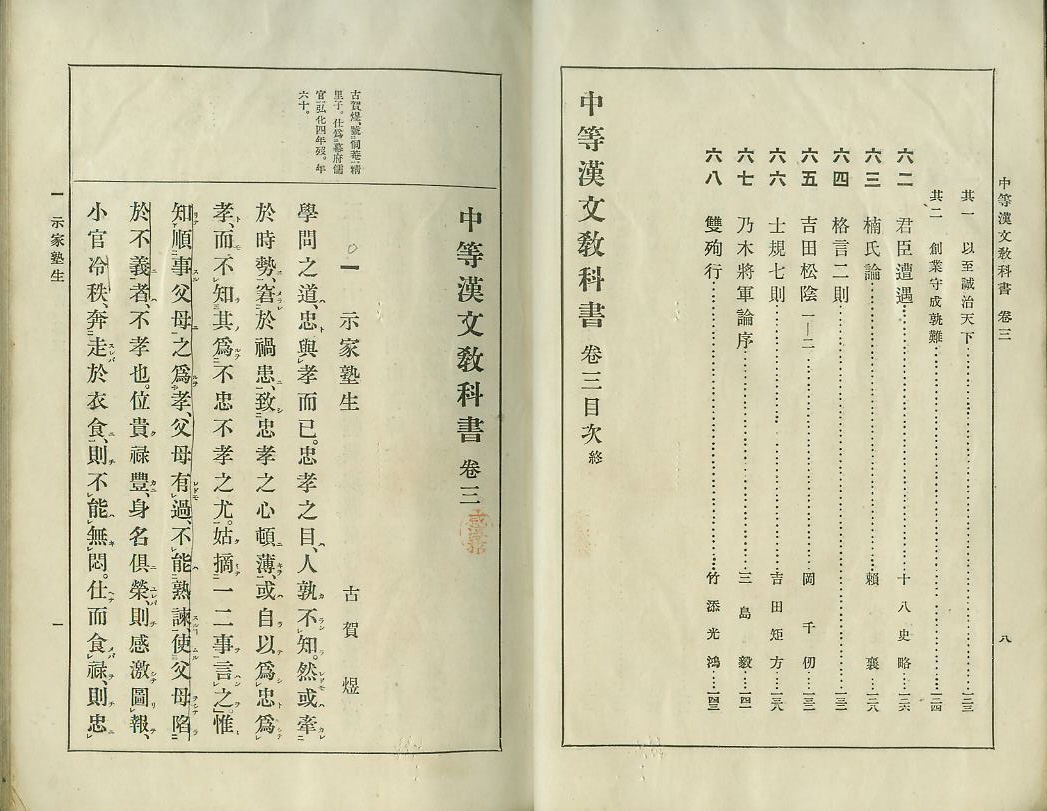 中等漢文敎科書 卷三
八
其一 以至誠治天下…一三三
其二 創業守成孰難…一三四
六二 君臣遭遇…十八史略…一三六
六三 楠氏論…賴襄…一三八
六四 格言二則…一三二
六五 吉田松陰 一—二…岡千仞…一三二
六六 士規七則…吉田矩方…一三八
六七 乃木將軍論序…三島毅…一四一
六八 雙殉行…竹添光鴻…一四三
中等漢文敎科書 卷三目次 終
中等漢文敎科書 卷三
一 示家塾生 古賀煜
學問之道、忠與孝而已。忠孝之目、人孰不知。然或牽
於時勢、窘於禍患、致忠孝之心頓薄、或自以爲忠爲
孝、而不知其爲不忠不孝之尤。姑摘一二事言之。惟
知順事父母之爲孝、父母有過、不能熟諫、使父母陷
於不義者、不孝也。位貴祿豐、身名俱榮、則感激圖報、
小官冷秩、奔走於衣食、則不能無悶。仕而食祿、則忠
古賀煜、號侗菴、精
里子。仕爲幕府儒
官。弘化四年歿。年
六十。
一 示家塾生
一